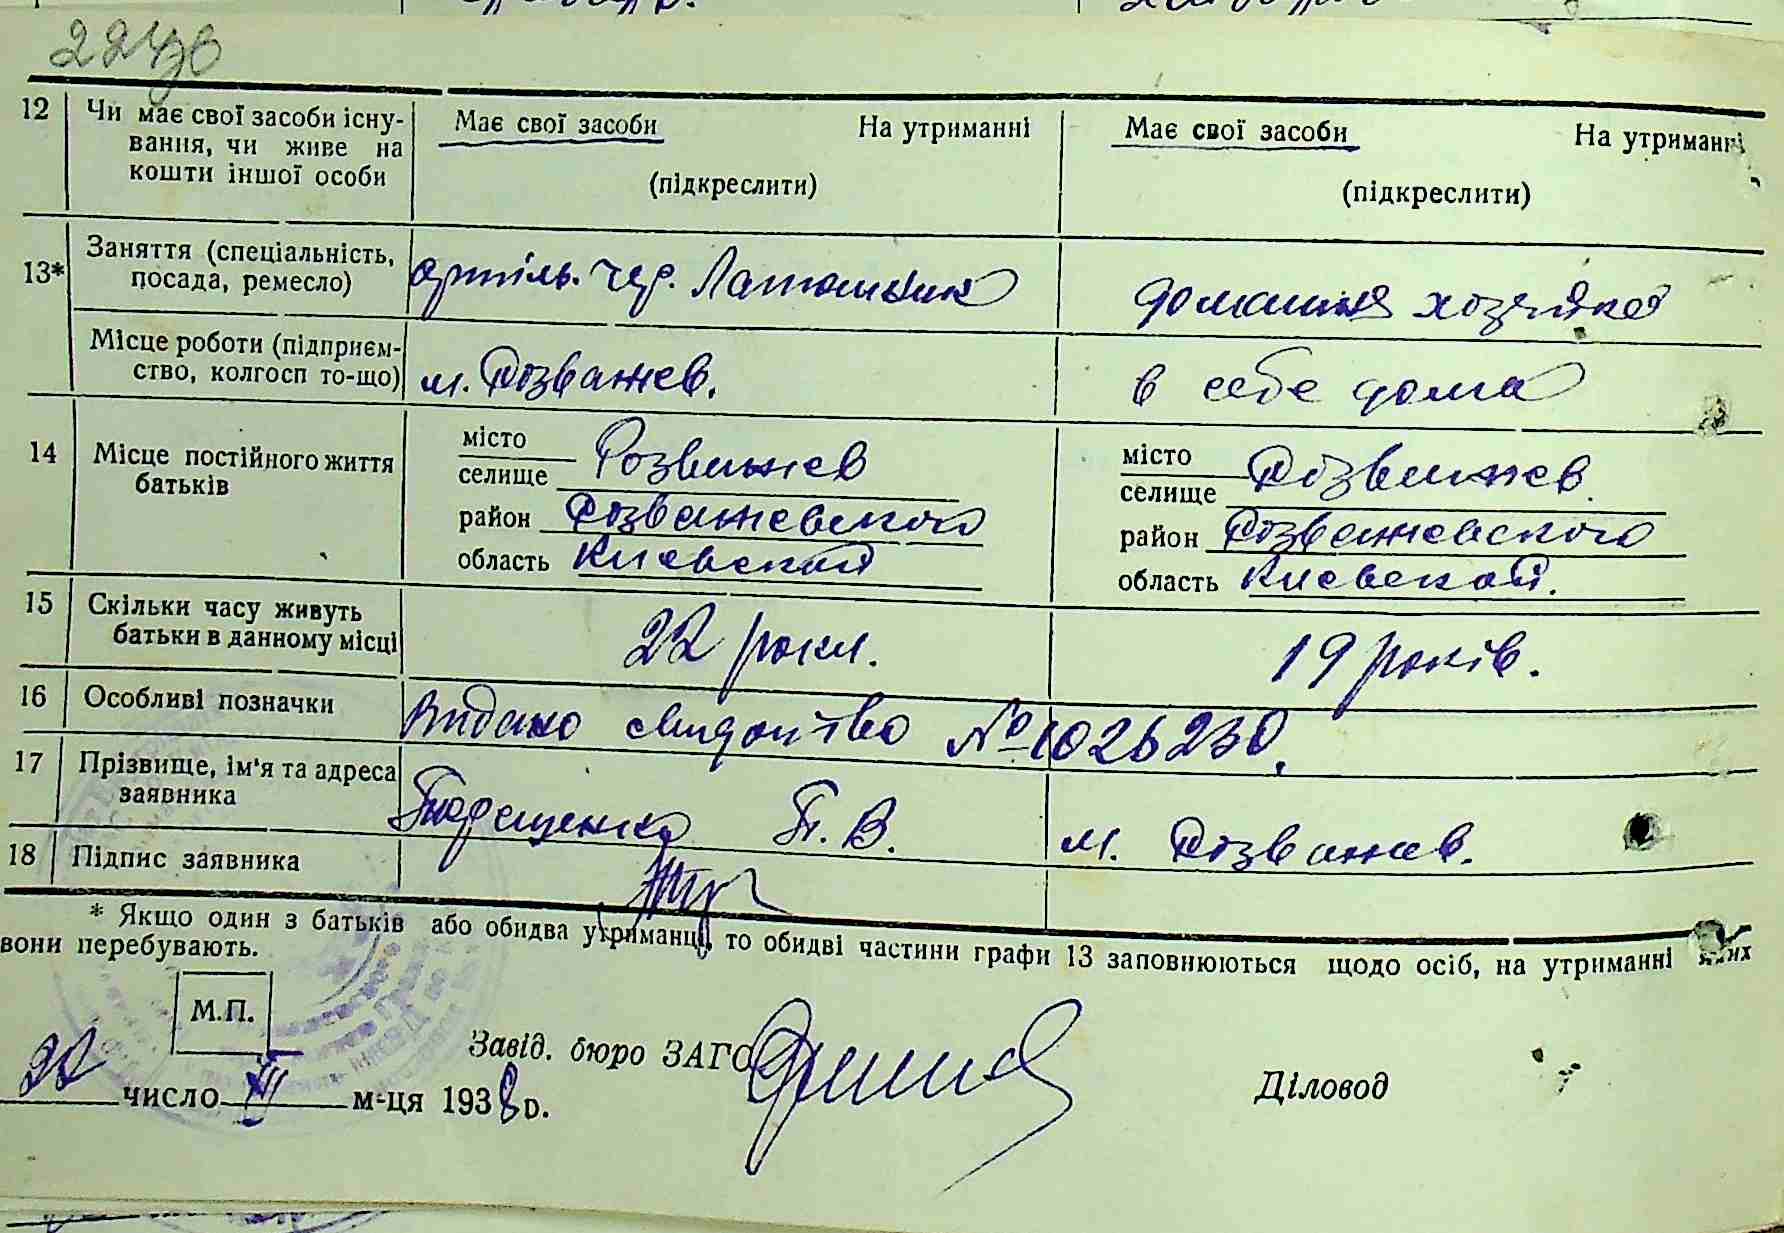 12 Чи має свої засоби існу-
вання, чи живе на
кошти іншої особи
Має свої засоби На утриманні
(підкреслити)
Має свої засоби На утриманні
(підкреслити)
13* Заняття (спеціальність,
посада, ремесло)
артіль. чер.
домашня хозяйка
Місце роботи (підприєм-
ство, колгосп то-що)
м. Розважев.
в себе дома
14 Місце постійного життя
батьків
місто
селище Розважев
район Розважевского
область Киевской
місто
селище Розважев.
район Розважевского
область Киевской.
15 Скільки часу живуть
батьки в данному місці
22 роки.
19 років.
16 Особливі позначки
Видано свидоцтво № 1026230.
17 Прізвище, ім'я та адреса
заявника
П. В.
м. Розважев.
18 Підпис заявника
* Якщо один з батьків або обидва утриманці, то обидві частини графи 13 заповнюються щодо осіб, на утриманні яких
вони перебувають.
М.П.
Завід. бюро ЗАГС
Діловод
22 число XII м-ця 1938 р.